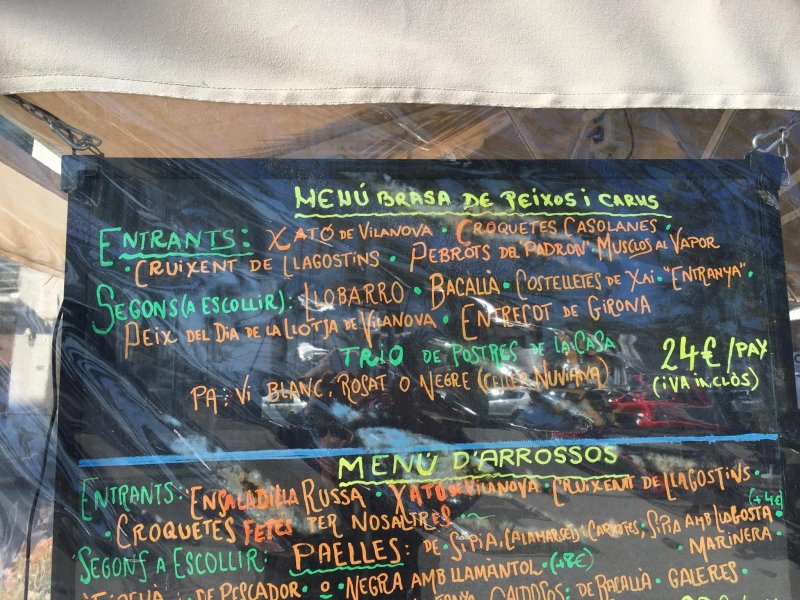 MENÚ BRASA DE PEIXOS i CARNS
ENTRANTS: XATÓ DE VILANOVA · CROQUETES CASOLANES ·
· CRUIXENT DE LLAGOSTINS · PEBROTS DEL "PADRON" · MUSCLOS AL VAPOR
SEGONS (A ESCOLLIR): LLOBARRO · BACALLÀ · COSTELLETES DE XAI · "ENTRANYA" ·
PEIX DEL DIA DE LA LLOTJA DE VILANOVA · ENTRECOT DE GIRONA
TRIO DE POSTRES DE LA CASA
24€/PAX
PA, Vi BLANC, ROSAT O NEGRE (CELLER NUVIANA)
(iVA INCLÒS)
MENÚ D'ARROSSOS
ENTRANTS: ENSALADILLA RUSSA · XATÓ DE VILANOVA · CRUIXENT DE LLAGOSTINS ·
· CROQUETES FETES PER NOSALTRES
(+4€)
SEGONS A ESCOLLIR: PAELLES: DE SIPIA, CALAMARSET i CARXOFES, SIPIA AMB LLAGOSTA
· MARINERA ·
DE PESCADOR · O · NEGRA AMB LLAMANTOL · (+8€)
DE BACALLÀ · GALERES ·